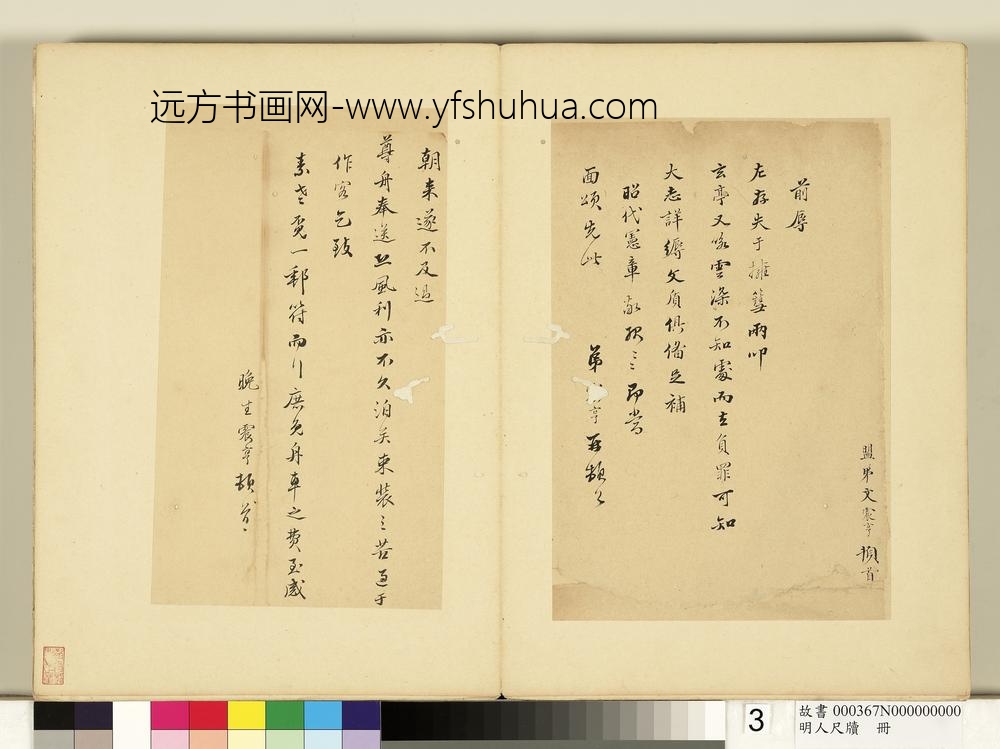 远方书画网-www.yfshuhua.com
盟弟文震亨頓首
前辱
左存失于擁篲兩叩
玄亭又以雲深不知處而去負罪可知
大志詳縟文質俱備足補
昭代憲章敬取三三即當
面頌先此
弟 亨再頓首
朝來遂不及過
尊舟奉送然風利亦不久泊矣束裝之苦過于
作客乞致
素老覓一郵符而行庶免舟車之費至感
晚生震亨頓首
3
故書 000367N000000000
明人尺牘 冊